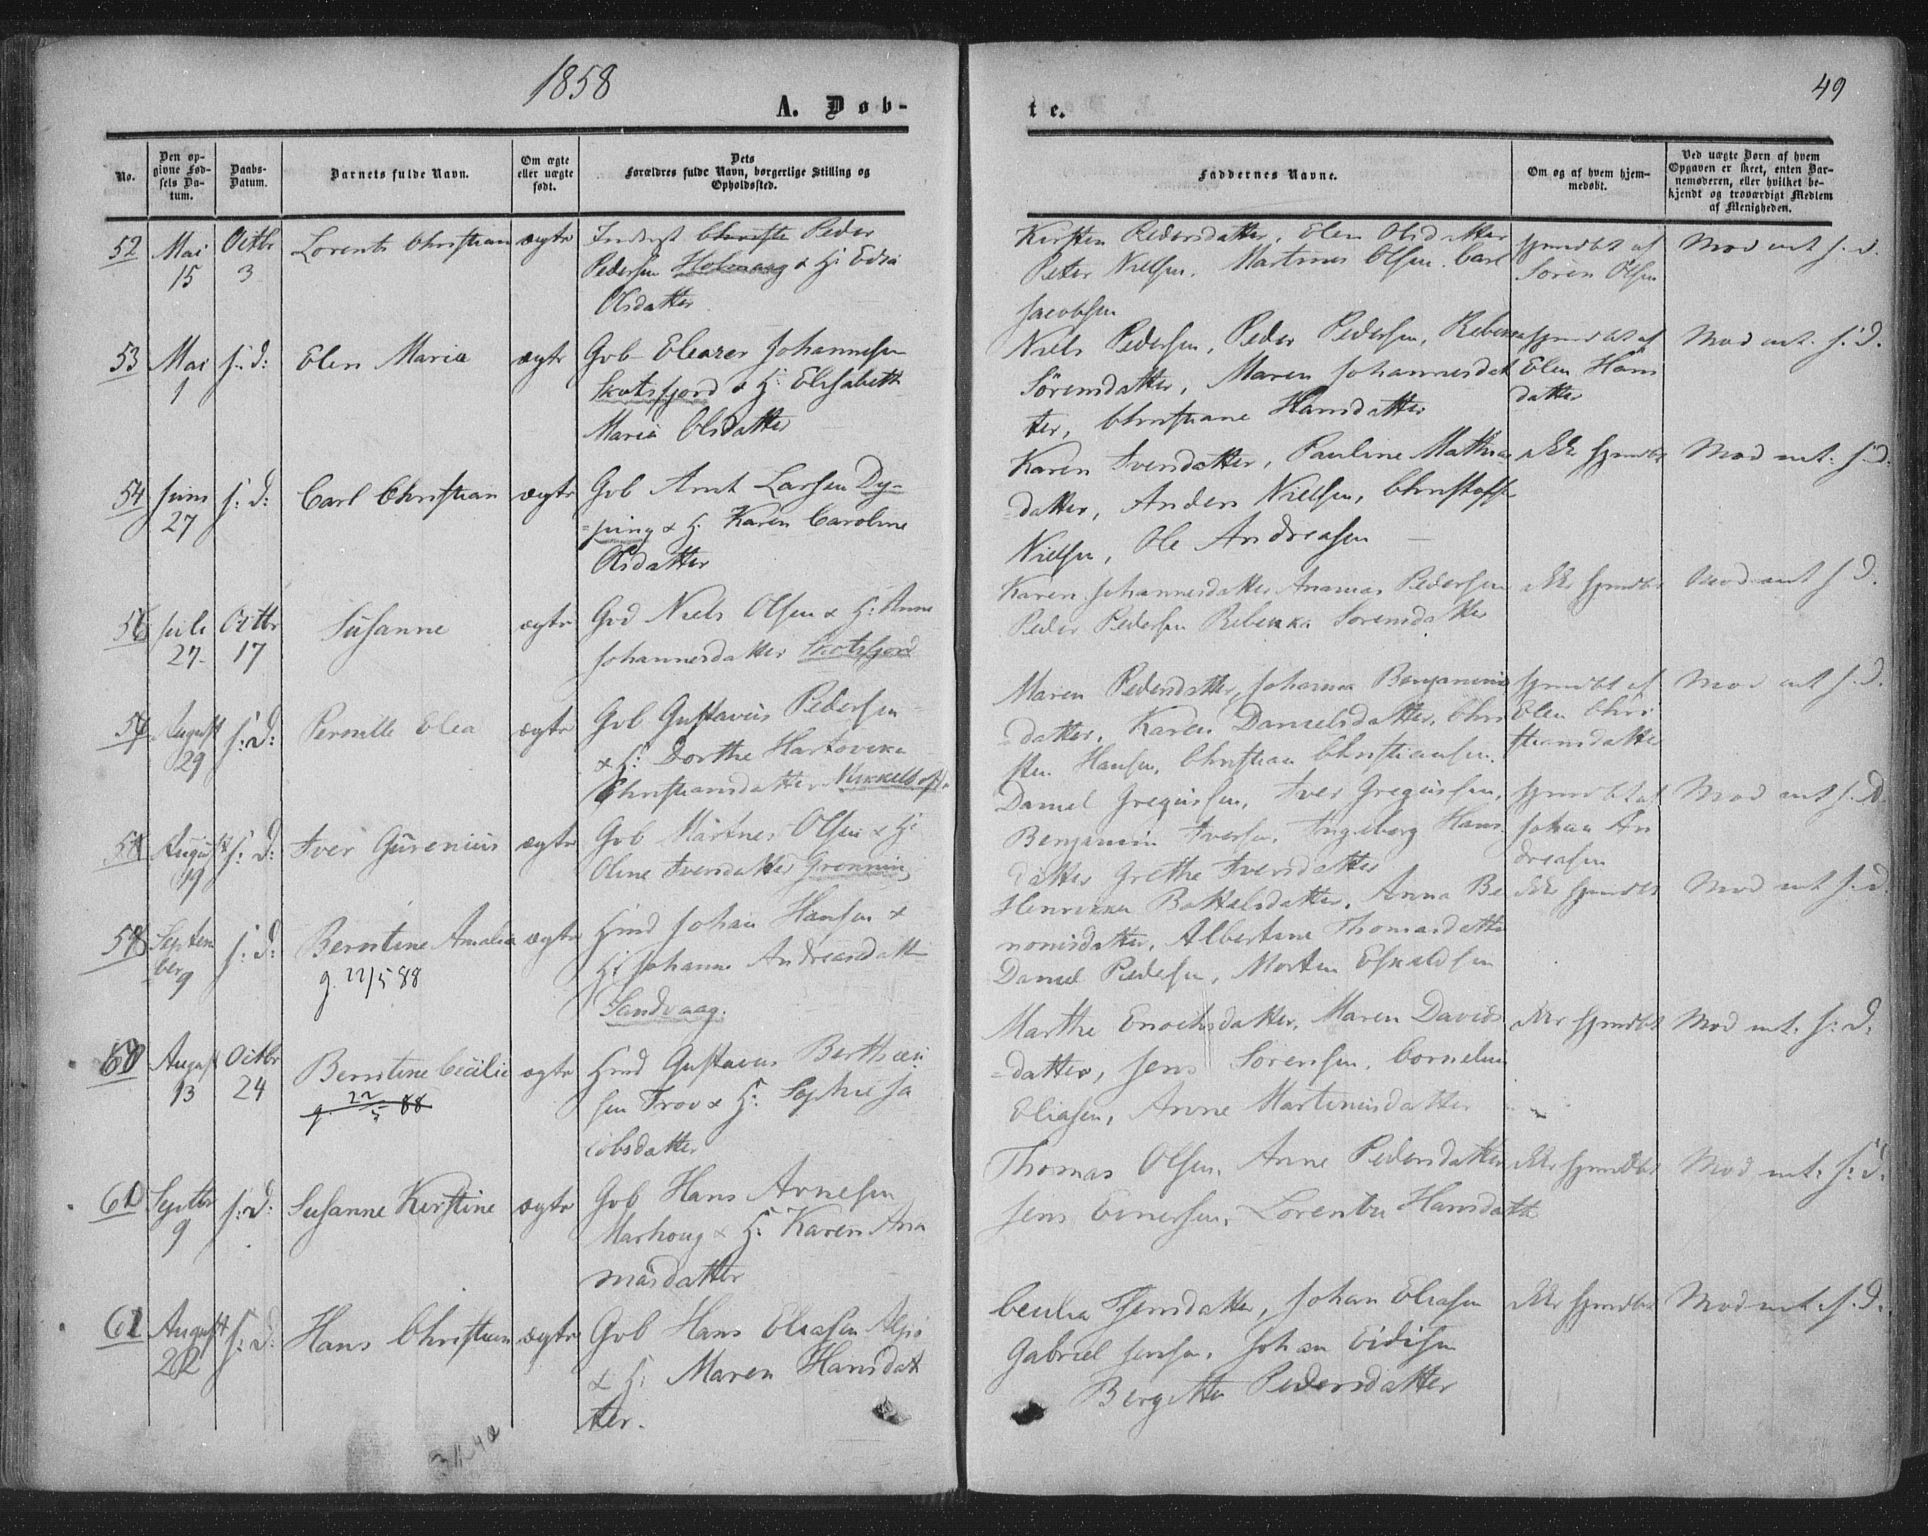 1858
49
A. Døb-
te.
No.
Den op-
givne Fød-
sels Da-
tum.
Daabs-
Datum.
Barnets fulde Navn.
Om ægte
eller uægte
født.
Dets
Forældres fulde Navn, borgerlige Stilling og
Opholdssted.
Faddernes Navne.
Om og af hvem hjem-
medøbt.
Ved uægte Born af hvem
Opgaven er skeet, enten Bar-
nemoderen, eller hvilket be-
kjendt og troværdigt Medlem
af Menigheden.
52 Mai 15 Octbr 3 Lorents Christian ægte
Inderst Peder
Pedersen & H:
Olsdatter
Kirsten Pedersdatter, Elen Olsdatter
Peter Nielsen, Martinus Olsen, Carl
Jacobsen
hjmdbt af
Søren Olsen
Mod vnt s. d.
53 Mai 1 s: d: Elen Maria ægte
Gvb Eleazer Johannesen
Skotsfjord & H: Elisabeth
Maria Olsdatter
Niels Pedersen, Peder Pedersen, Rebekka
Sörensdatter, Maren Johannesdat
ter, Christiane Hansdatter
hjmdbt af
Elen Hans
datter
Mod vnt. s. d.
54 Juni 27 s: d: Carl Christian ægte
Gvb Arnt Larsen Dy-
=ping & H. Karen Caroline
Olsdatter
Karen Iversdatter, Pauline Mathia
=datter, Anders Nielsen, Christoffer
Nielsen, Ole Andreasen
ikke hjmdbt
Mod vnt: s. d.
Juli 27 Octbr 17 Susanne ægte
Gvd Niels Olsen & H: Anne
Johannesdatter Skotsfjord
Karen Johannesdatter Ananias Pedersen
Peder Pedersen Rebekka Sorensdatter
ikke hjmdbt
Mod vnt s. d.
August 29 s: d: Pernille Elea ægte
Gvb Gustavus Pedersen
& H: Dorthe Hartvikka
Christiansdatter
Maren Pedersdatter, Johanna Benjamins
=datter, Karen Danielsdatter, Chri
sten Hansen, Christian Christiansen.
hjmdbt af
Elen Chri
stiansdatter
Mod vnt s. d.
August 19 s: d: Iver Gurenius ægte
Gvb Martines Olsen & H:
Oline Iversdatter Grønning
Daniel Gregusen, Iver Gregusen,
Benjamin Iversen, Ingeborg Hans
datter Grethe Iversdatter
hjmdbt af
Johan An
dreasen
Mod vnt s. d.
58 Septem
ber 9 s: d: Berntine Amalia ægte
g. 22/5 88
Hmd Johan Hansen &
H: Johanne Andreasdatter
Sandvaag.
Henrikka Bottelsdatter, Anna Be
nonisdatter, Albertine Thomasdatter
Daniel Pedersen, Morten
ikke hjmdbt
Mod vnt s. d.
60 August 13 Octbr 24 Berntine Cecilie ægte
g. 22/5 88
Hmd Gustavus Bertheu
sen Trov & H: Sophie Ja
cobsdatter
Marthe Enochsdatter, Maren Davids
=datter, Jens Sorensen, Cornelius
Eliasen, Anne Martinusdatter
ikke hjmdbt
Mod vnt. s: d.
61 Septbr 9 s: d: Susanne Kirstine ægte
Gvb Hans Arnesen
Marhoug & H: Karen Ana
niasdatter
Thomas Olsen, Anne Pedersdatter
Jens Einersen, Lorentze Hansdatter
ikke hjmdbt
Mod vnt: s: d:
62 August 22 s: d: Hans Christian ægte
Gvb Hans Eliasen
& H: Maren Hansdat
ter.
Cecilia Jensdatter, Johan Eliasen
Gabriel Jensen, Johan
Bergitte Pedersdatter
ikke hjmdbt
Mod vnt. s. d.